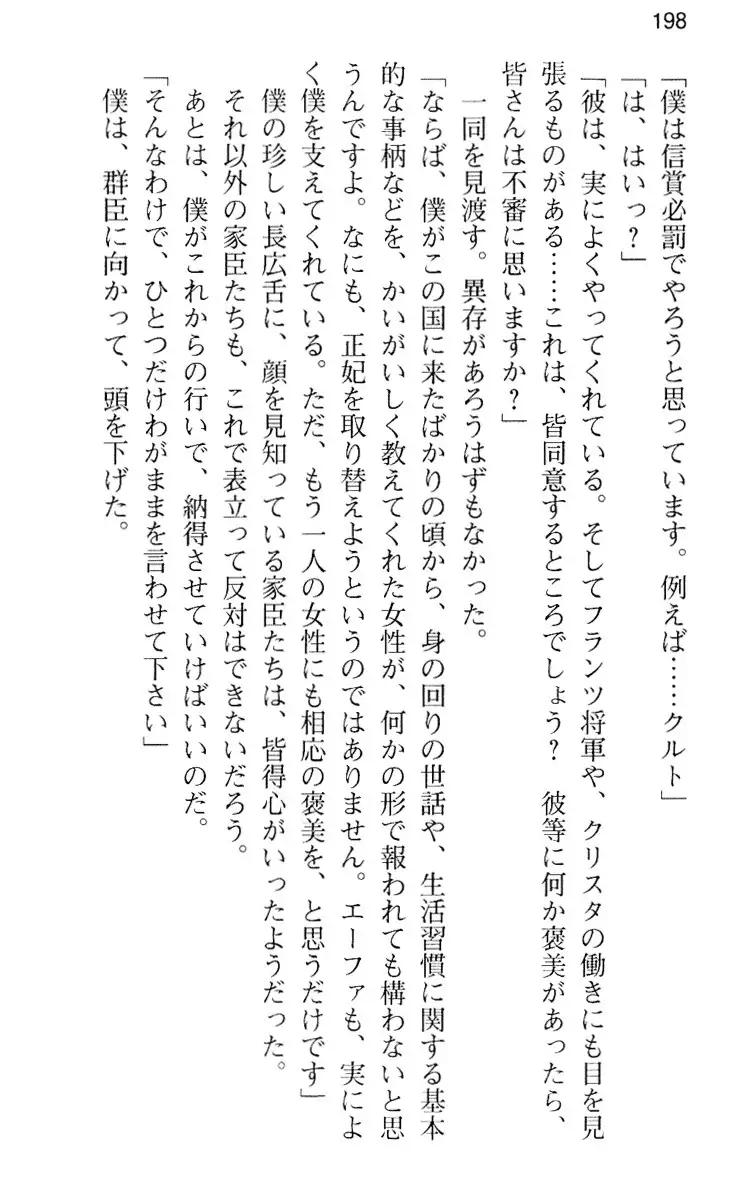 198
「僕は信賞必罰でやろうと思っています。例えば……クルト」
「は、はいっ？」
「彼は、実によくやってくれている。そしてフランツ将軍や、クリスタの働きにも目を見
張るものがある……これは、皆同意するところでしょう？　彼等に何か褒美があったら、
皆さんは不審に思いますか？」
　一同を見渡す。異存があろうはずもなかった。
「ならば、僕がこの国に来たばかりの頃から、身の回りの世話や、生活習慣に関する基本
的な事柄などを、かいがいしく教えてくれた女性が、何かの形で報われても構わないと思
うんですよ。なにも、正妃を取り替えようというのではありません。エーファも、実によ
く僕を支えてくれている。ただ、もう一人の女性にも相応の褒美を、と思うだけです」
　僕の珍しい長広舌に、顔を見知っている家臣たちは、皆得心がいったようだった。
　それ以外の家臣たちも、これで表立って反対はできないだろう。
　あとは、僕がこれからの行いで、納得させていけばいいのだ。
「そんなわけで、ひとつだけわがままを言わせて下さい」
　僕は、群臣に向かって、頭を下げた。